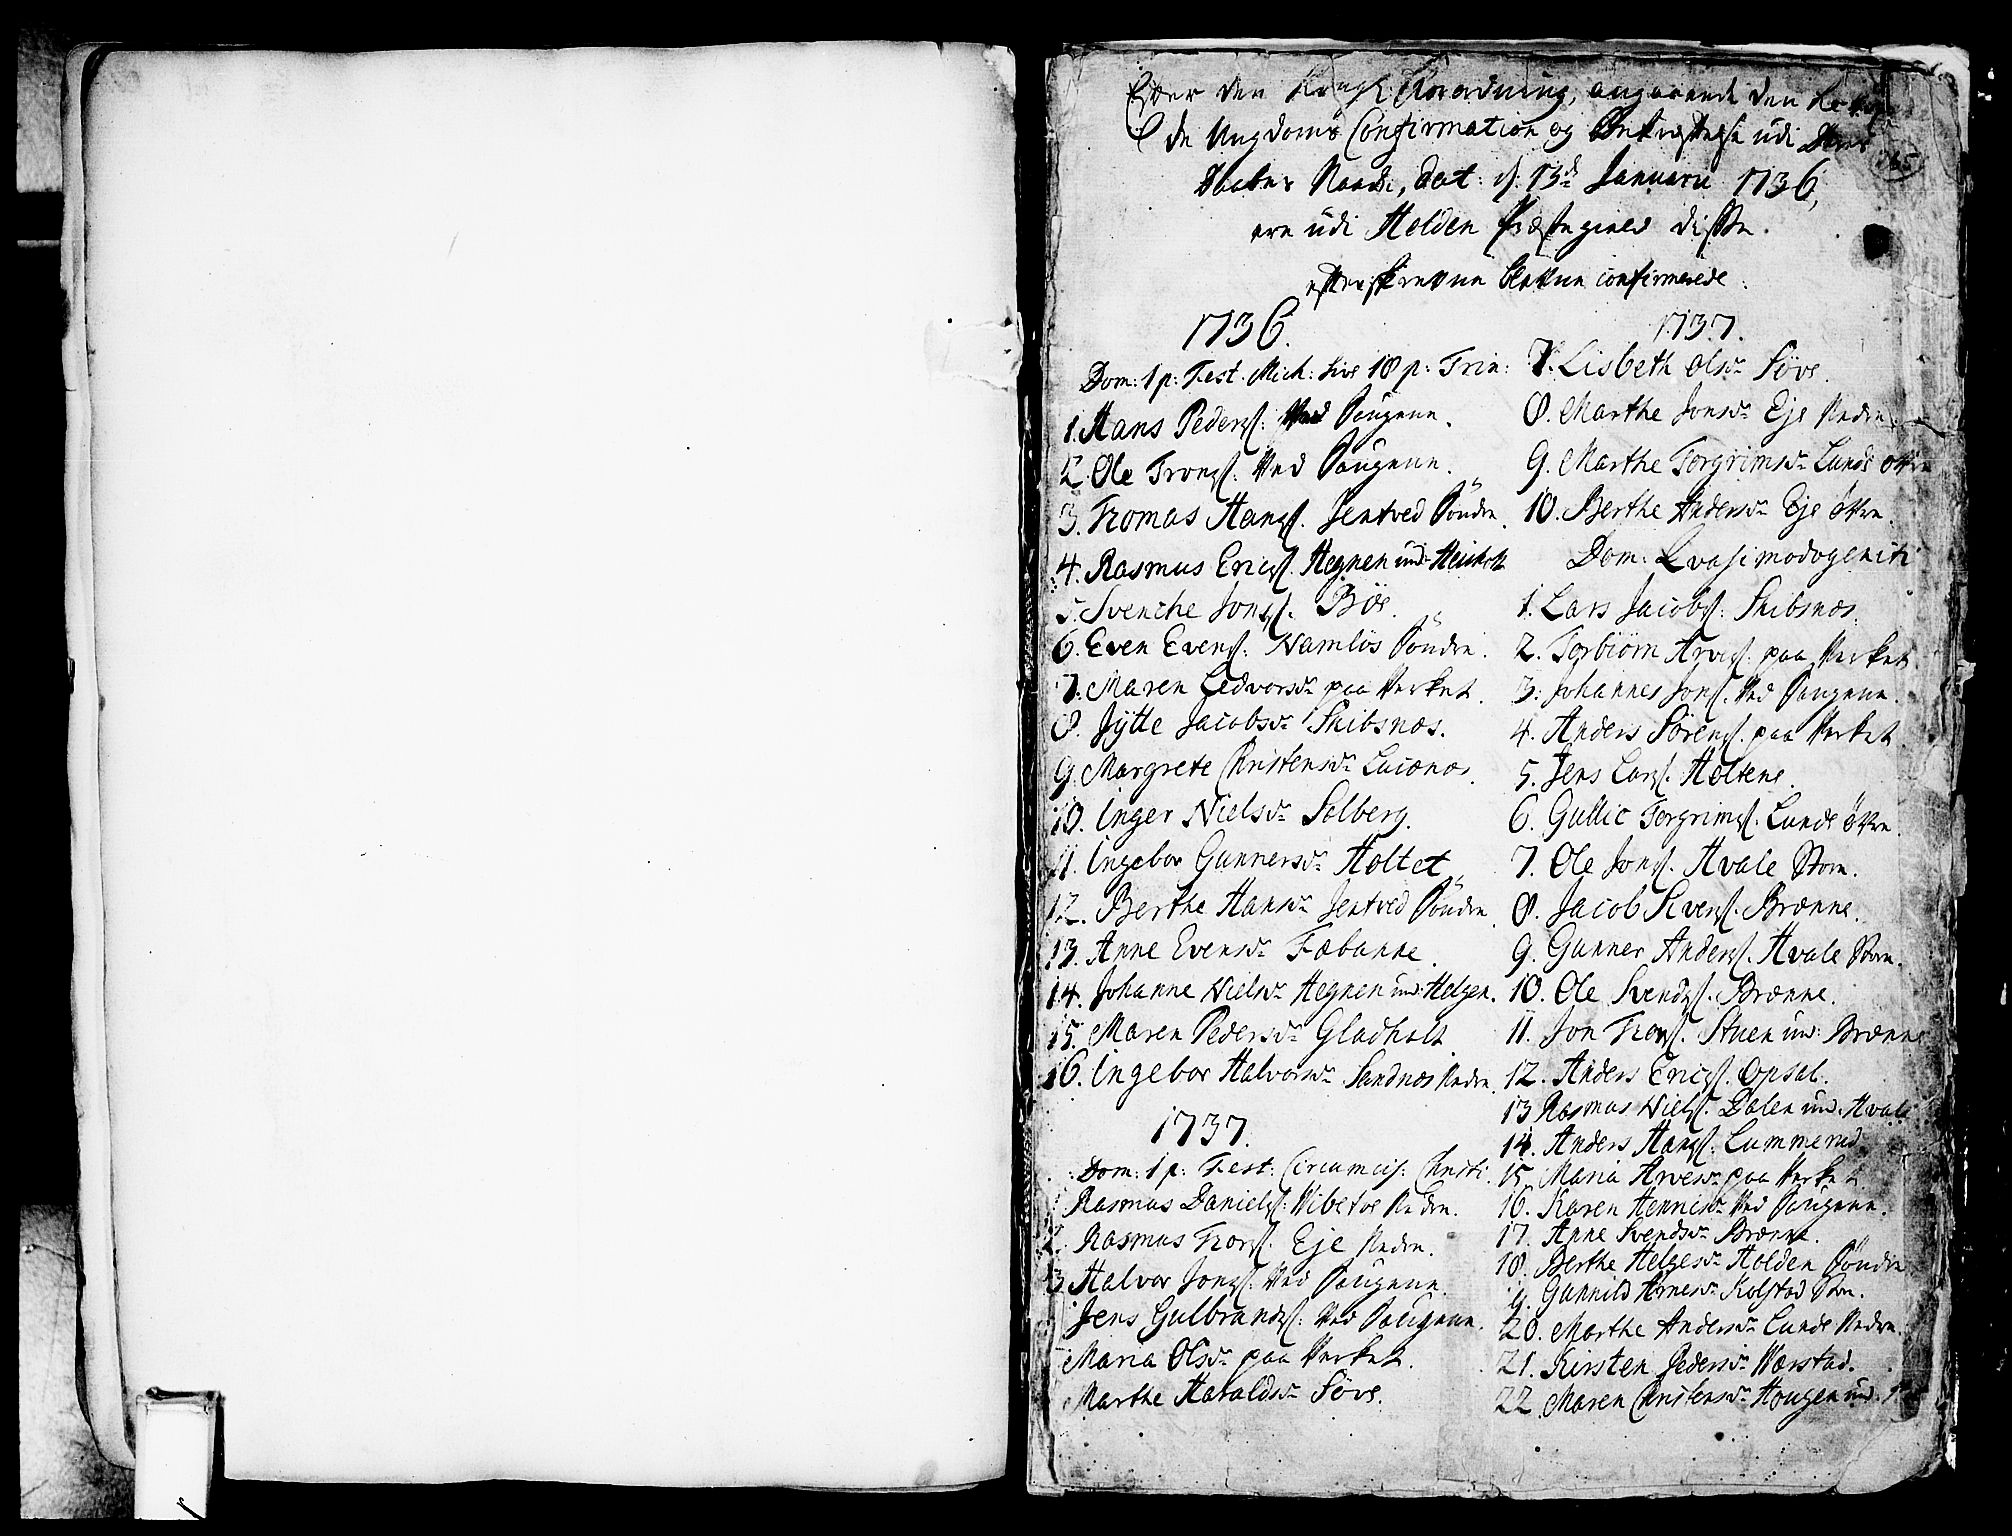 Efter den Kongl: Forordning, angaaende den
de Ungdoms Confirmation og Bekræftelse udi Deres
265
Daabes Naade, dat: d: 13de Januarii 1736,
ere udi Holden Præstegield disse
efterskrevne blevne confirmerede.
1736.
Dom: 1 p: Fest. Mich: sive 18 p: Trin:
1. Hans Peders: Ved Saugene.
2. Ole Trons: Ved Saugene.
3. Tromas Hans. Jentved Söndre.
4. Rasmus Erics. Hegnen und:
5. Svenche Jons. Böe.
6. Even Evens: Namlös Söndre.
7. Maren Ledvorsdr paa Verket.
8. Jÿtte Jacobsdr Skibsnæs.
9. Margrete Christensdr
10. Inger Nielsdr Solberg.
11. Ingebor Gunnersdr Holtet
12. Berthe Hansdr Jentved Söndre.
13. Anne Evensdr Fæbanne.
14. Johanne Nielsdr Hegnen und: Helgen.
15. Maren Pedersdr Gladholt
16. Ingebor Halvorsdr Sandnæs Nedre.
1737.
Dom: 1 p: Fest: Circumcis: Christi.
1. Rasmus Daniels: Vibetoe Nedre.
2. Rasmus Trons. Eje Nedre.
3 Halvor Jons. Ved Saugene.
Jens Gulbrands: Ved Saugene.
Maria Olsdr paa Verket.
Marthe Haraldsdr Söve.
1737.
7. Lisbeth Olsdr Söve.
8. Marthe Jonsdr Eje Nedre.
9. Marthe Torgrimsdr Lunde Ofre
10. Berthe Andersdr Eje Öfre.
Dom: Qvasimodogeniti
1. Lars Jacobs: Skibsnæs.
2. Torbiörn Arves. paa Verket
3. Johannes Jons. Ved Saugene.
4. Anders Sörens. paa Verket
5. Jens Lars. Holtene.
6. Gullic Torgrims. Lunde Öfre.
7. Ole Jons. Hvale Store.
8. Jacob Svens. Brænne.
9. Gunner Anders. Hvale Store.
10. Ole Svends. Brænne.
11. Jon Trons. Stuen und: Brænne
12. Anders Erics. Opsal.
13 Rasmus Niels. Dalen und: Hvale
14. Anders Hans. Lummerud.
15. Maria Arvesdr paa Verket
16. Karen Henricsdr Ved Saugene.
17. Anne Svendsdr Brænne.
18. Berthe Helgesdr Holden Söndre
19. Gunnild Arnesdr Kolstad Store.
20. Marthe Andersdr Lunde Nedre.
21. Kirsten Pedersdr Værstad.
22. Maren Christensdr Hougen und: